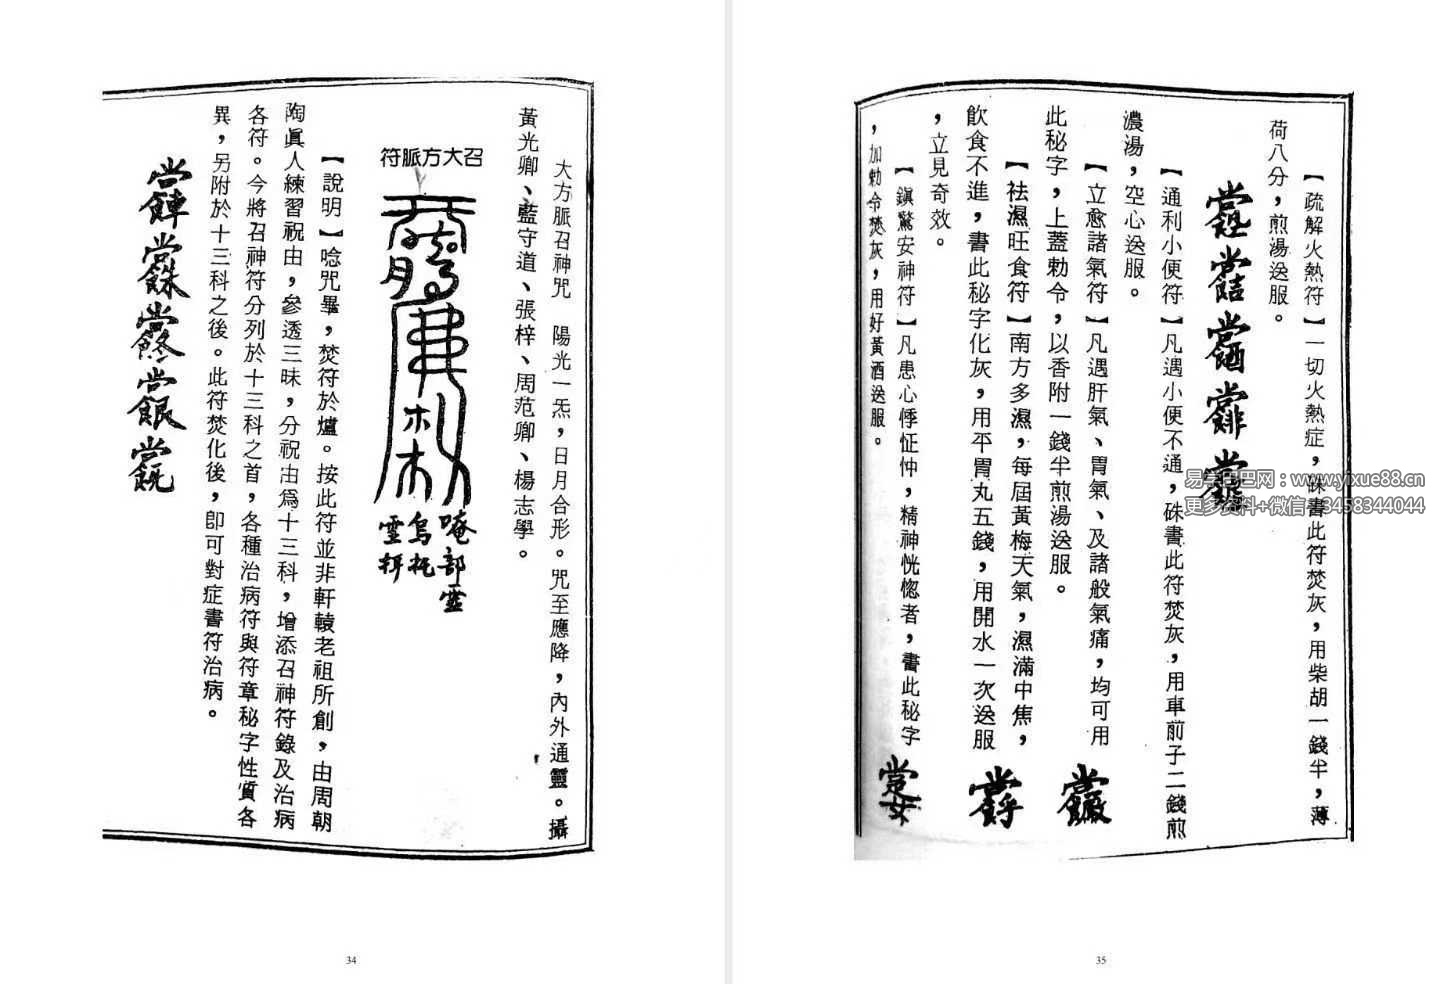 大方脈召神咒　陽光一炁，日月合形。咒至應降，內外通靈。攝
黃光卿、藍守道、張梓、周范卿、楊志學。
召大方脈符
唵部靈
烏扥
靈
【說明】唸咒畢，焚符於爐。按此符並非軒轅老祖所創，由周朝
陶眞人練習祝由，參透三昧，分祝由爲十三科，增添召神符錄及治病
各符。今將召神符分列於十三科之首，各種治病符與符章秘字性質各
異，另附於十三科之後。此符焚化後，卽可對症書符治病。
34
【疏解火熱符】一切火熱症，硃書此符焚灰，用柴胡一錢半，薄
荷八分，煎湯送服。
【通利小便符】凡遇小便不通，硃書此符焚灰，用車前子二錢煎
濃湯，空心送服。
【立愈諸氣符】凡遇肝氣、胃氣、及諸般氣痛，均可用
此秘字，上蓋勅令，以香附一錢半煎湯送服。
【祛濕旺食符】南方多濕，每屆黃梅天氣，濕滿中焦，
飲食不進，書此秘字化灰，用平胃丸五錢，用開水一次送服
，立見奇效。
【鎭驚安神符】凡患心悸怔忡，精神恍惚者，書此秘字
，加勅令焚灰，用好黃酒送服。
35
易学巴巴网：www.yixue88.cn
更多资料+微信：3458344044